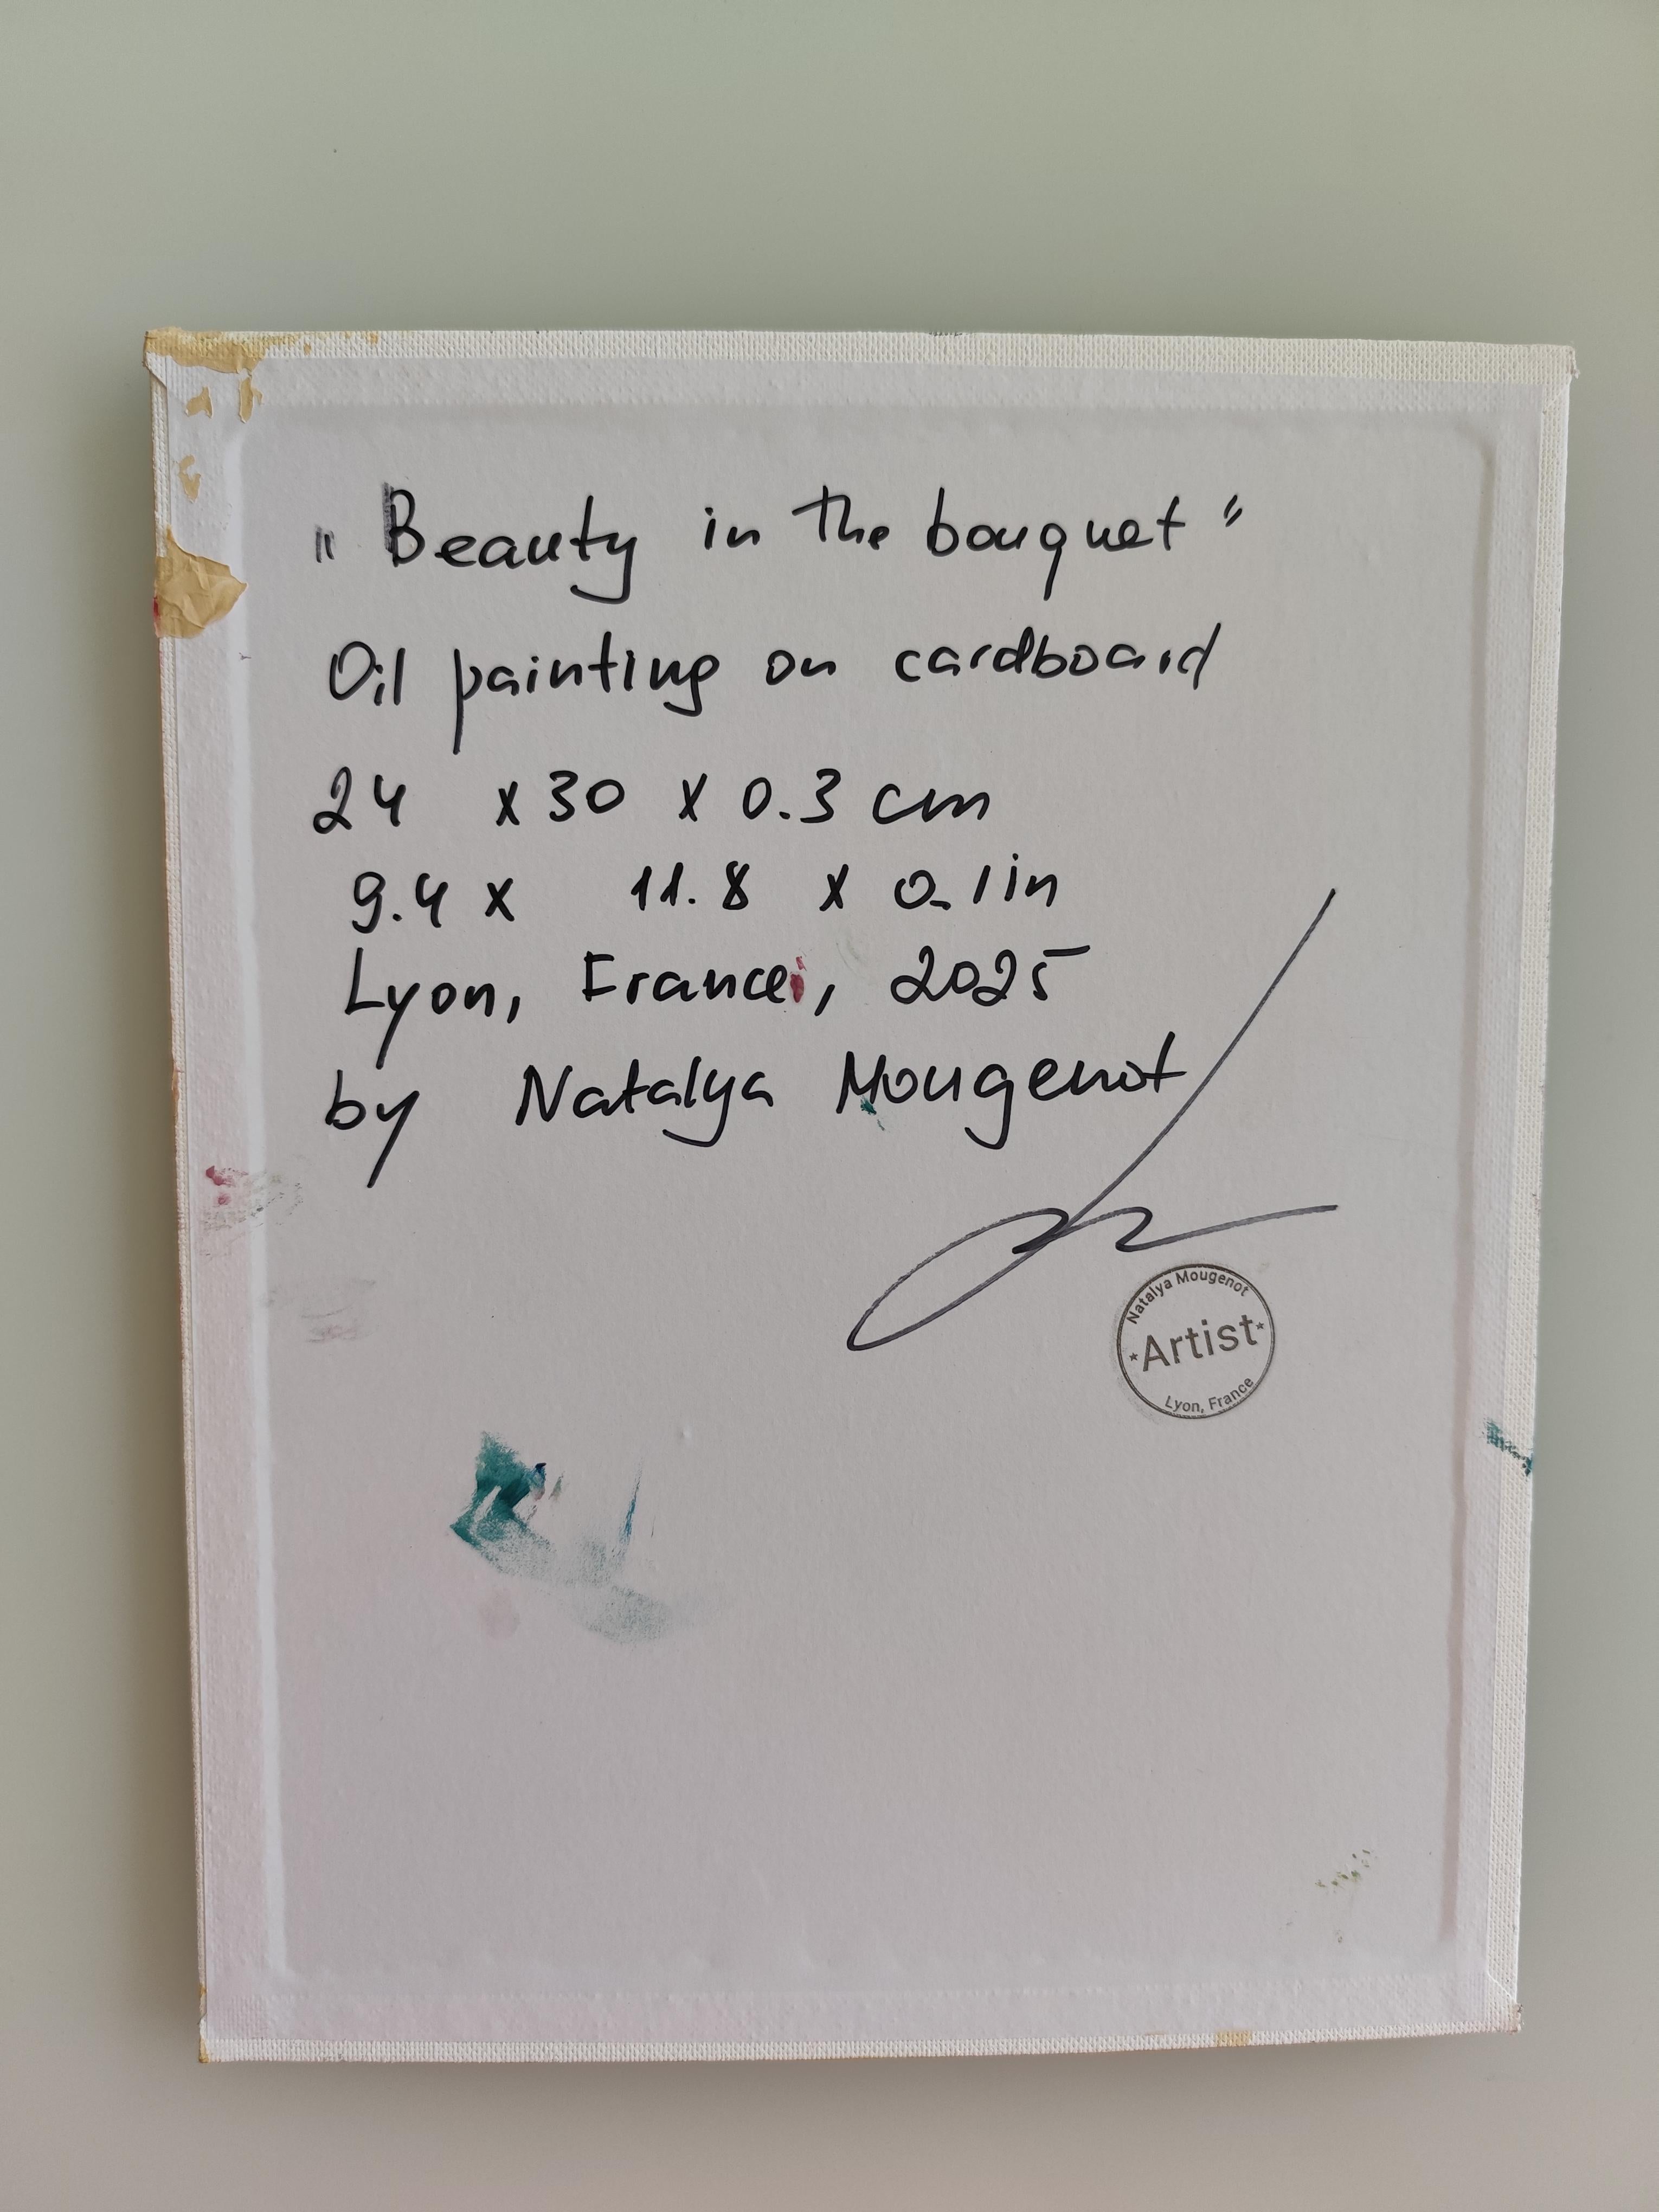 "Beauty in the bouquet"
Oil painting on cardboard
24 x 30 x 0.3 cm
9.4 x 11.8 x 0.1 in
Lyon, France, 2025
by Natalya Mougenot
Natalya Mougenot
*Artist*
Lyon, France